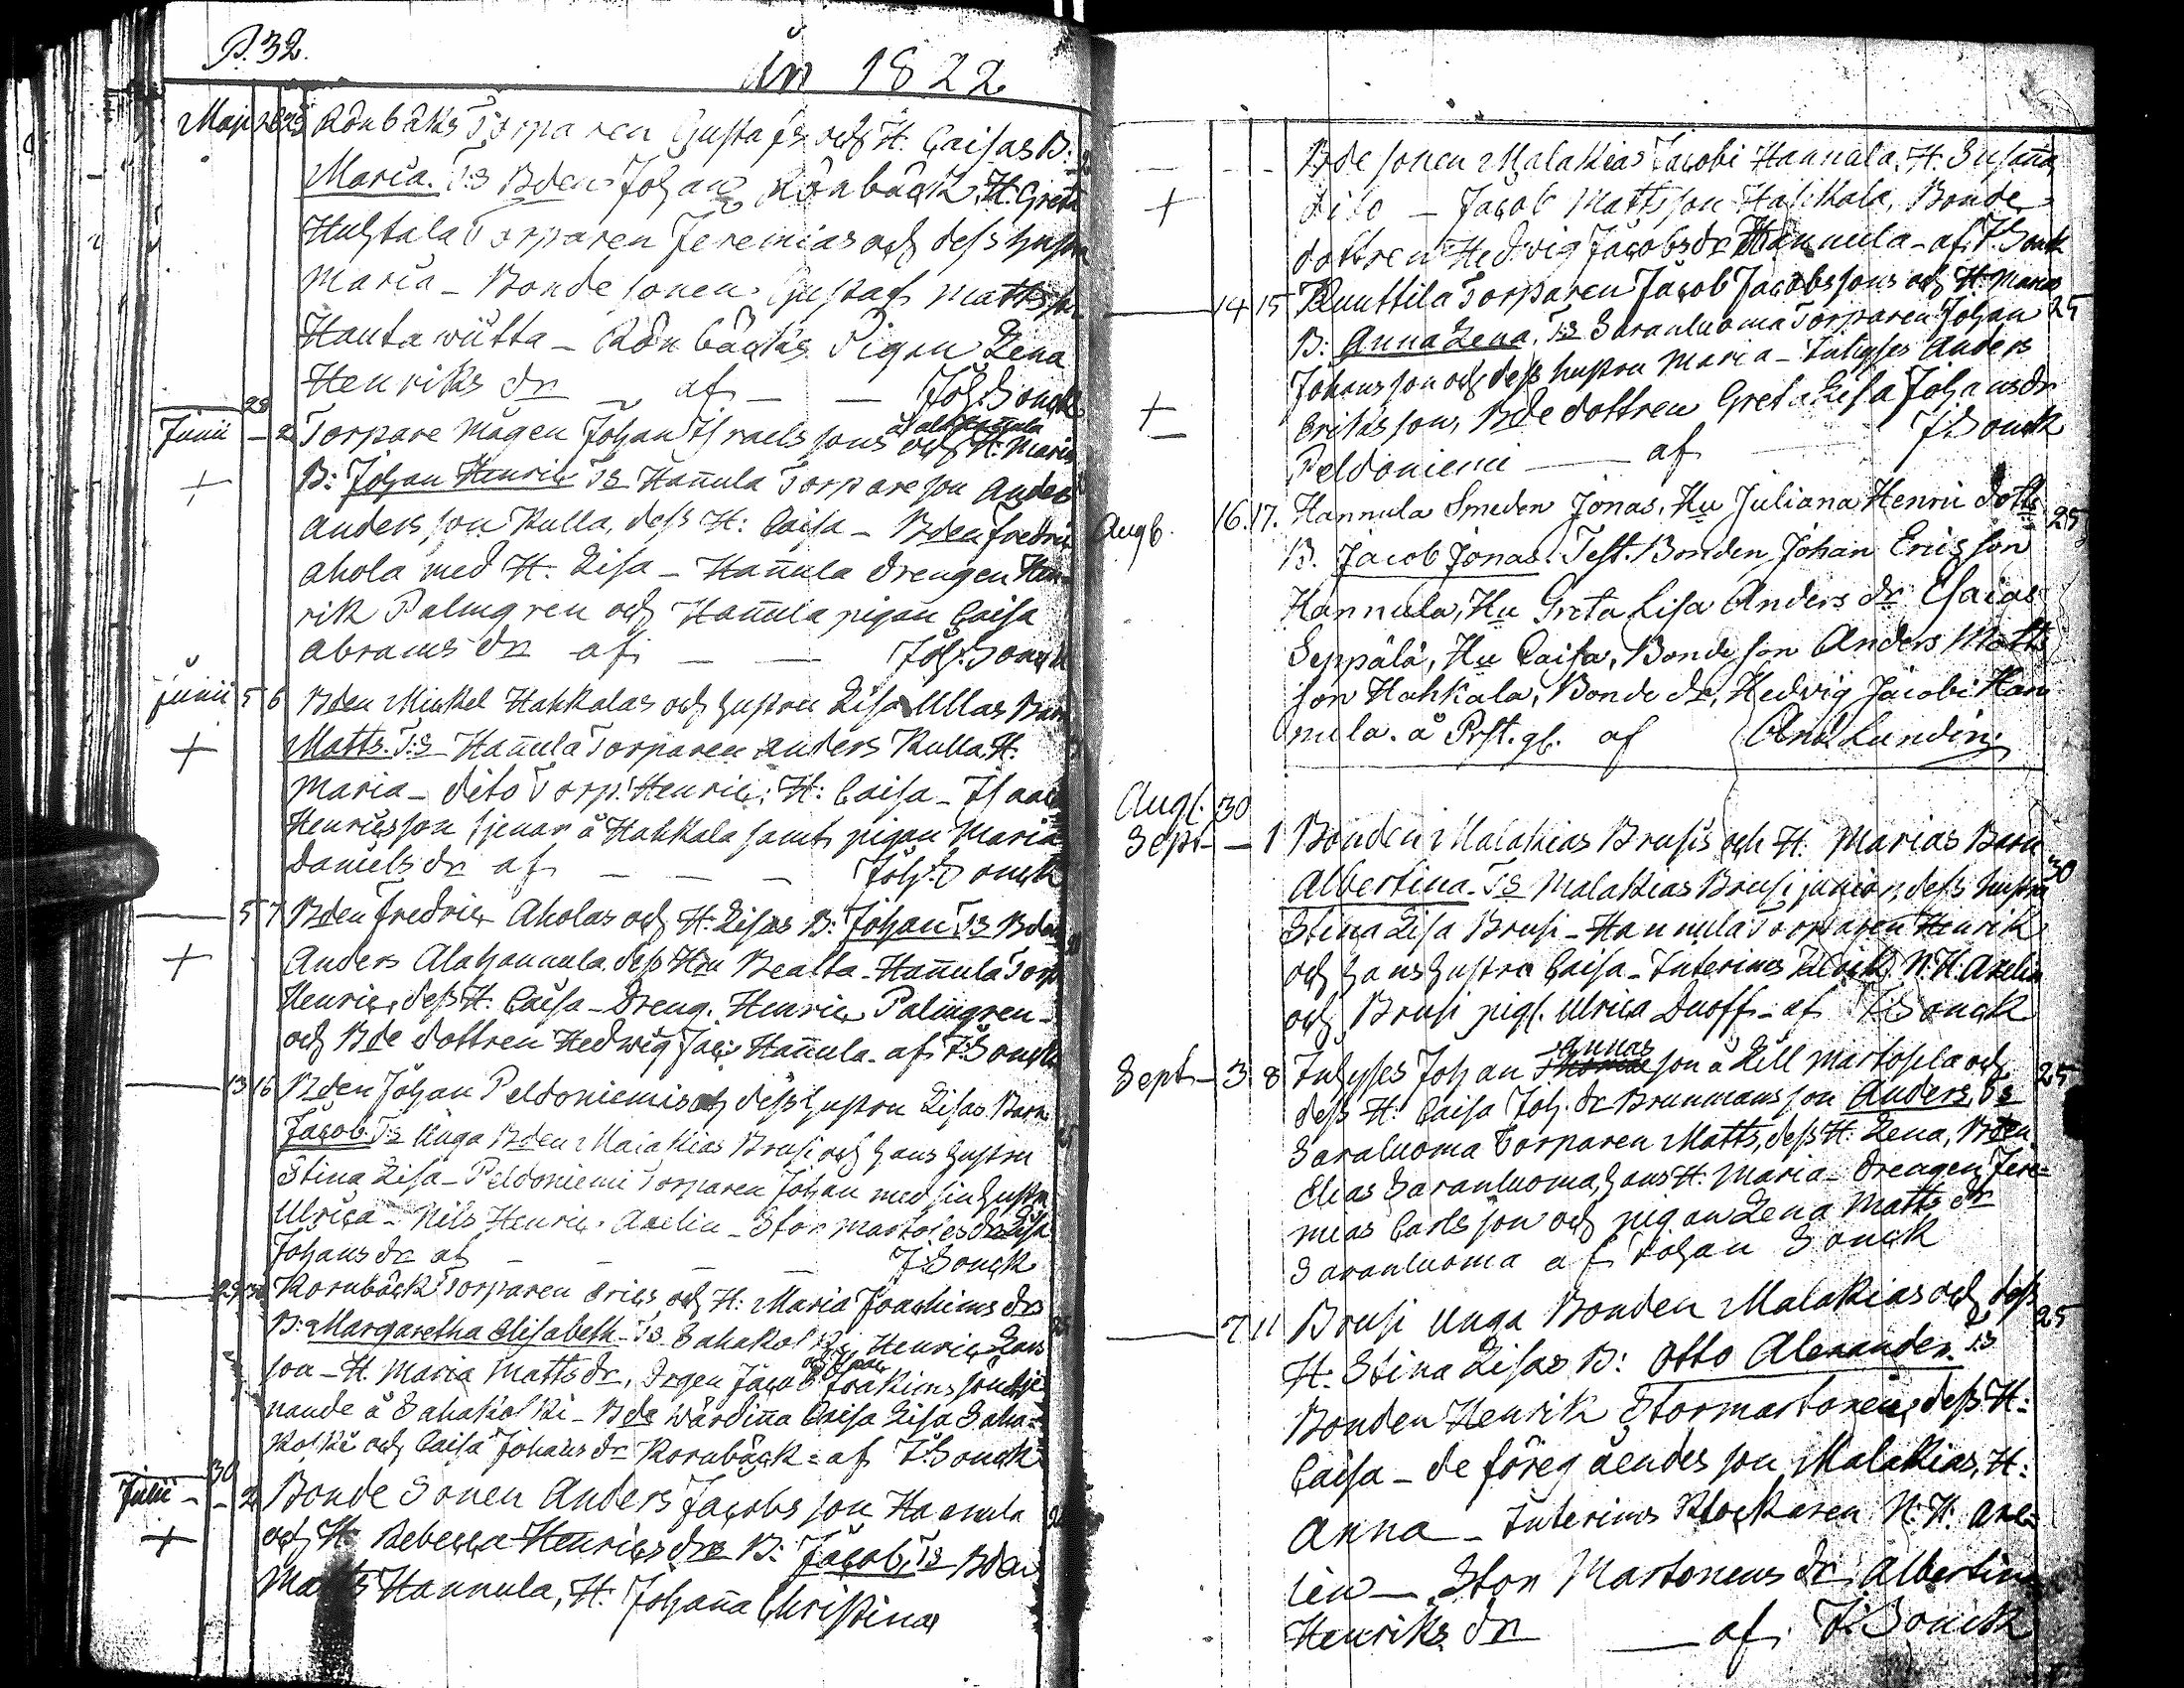 P. 32.
År 1822
Maji 28 28 Rönbäks Torparen Gustafs och H. Caisas B:
Maria. Ts Bden Johan Rönbäck, H. Greta
Huhtala Torparen Jeremias och dess hustru
Maria - Bonde sonen Gustaf Matts son
Hautawiitta - Rönbäcks Pigan Lena
Henriks dr - af - - Joh. Sonck
28
Junii - 2 Torpare Mågen Johan Israels sons och H. Marias
å alahannula
+ B: Johan Henric Ts Hanula Torpare son Anders
Anders son Kulla, dess H: Caisa - Bden Fredric
Ahola med H. Lisa - Hanula drengen Hen-
rik Palmgren och Hanula pigan Caisa
Abrams dr af - - Joh. Sonck
Junii 5 6 Bden Mickel Hakkalas och hustru Lisa Ullas Barn
+ Matts. T:s Hanula Torparen Anders Kulla, H.
Maria - dito Torp: Henric: H: Caisa - Isaac
Henricsson tjenar å Hakkala samt pigan Maria
Daniels dr af - - - Joh. Sonck
5 7 Bden Fredric Aholas och H: Lisas B: Johan Ts Bden
+ Anders Alahannula, dess Hu Beatta - Hanula Torp
Henric, dess H. Caisa - Dreng. Henric Palmgren -
och Bde dottren Hedwig Jac: Hanula - af J. Sonck
13 16 Bden Johan Peldoniemis och dess hustru Lisas Barn
25
Jacob. Ts Unga Bden Malakias Brusi och hans hustru
Stina Lisa - Peldoniemi Torparen Johan med sin hustru
Ulrica - Nils Henric Axelin - Stor martois dr Lisa
Johans dr af - - - J. Sonck
29 30 Kornbäck Torparen Erics och H: Maria Joachims drs
25
B: Margaretha Elisabeth - Ts Sahakoski Henric Lars
son - H. Maria Matts dr, Drgen Jacob Joakims son tje-
nande å Sahakoski - Bde wärdinna Caisa Lisa Saha-
koski och Caisa Johans dr Kornbäck = af J. Sonck
30
Julii - - 2 Bonde Sonen Anders Jacobs son Hannula
+ och H: Rebecca Henrics drs B: Jacob, Ts Bden
Matts Hannula, H: Johanna Christina
Bde sonen Malakias Jacobi Hannula, H. Susanna
+ dito - Jacob Matts son Hakkala, Bonde
dottren Hedvig Jacobs dr Hannula - af J. Sonck
14 15 Knuttila Torparen Jacob Jacobssons och H: Marias
25
B: Anna Lena, Ts Saranluoma Torparen Johan
Johansson och dess hustru Maria - Inhyses Anders
+ Eriks son, Bde dottren Greta Lisa Johans dr
Peldoniemi - af J Sonck
Augt. 16. 17. Hannula Smeden Jonas, Hu Juliana Henric dotts
25
B. Jacob Jonas. Test. Bonden Johan Ericsson
Hannula, Hu Greta Lisa Anders dr Esaias
Seppälä, Hu Caisa, Bonde son Anders Matts
son Hakkala, Bonde dr, Hedvig Jacobi Han
nula. å Prst. gl. af And. Lundin.
Augt. 30
Sept - - 1 Bonden Malakias Brusis och H. Marias Barn
30
Albertina. Ts Malakias Brusi junior, dess hustru
Stina Lisa Brusi - Hannula Torparen Henrik
och hans hustru Caisa - Interims N. H. Axelin
och Brusi pig. Ulrica Duoff - af J Sonck
Sept - 3 8 Inhyses Johan Annas son å Lill martosela och
25
dess H: Caisa Joh. dr Brunmans son Anders, Ts
Saraluoma Torparen Matts, dess H: Lena, Bden
Elias Saranluoma, hans H: Maria - drengen Jere-
mias Carls son och pigan Lena Matts dr
Saranluoma af Johan Sonck
7 11 Brusi Unga Bonden Malakias och dess
25
H: Stina Lisas B: Otto Alexander. Ts
Bonden Henrik Stormartonen, dess H:
Caisa - de föregåendes son, Malakias, H:
Anna - Interims Klockaren N. H. Axe-
lin - Stor Martonens dr Albertina
Henriks dr - af J. Sonck